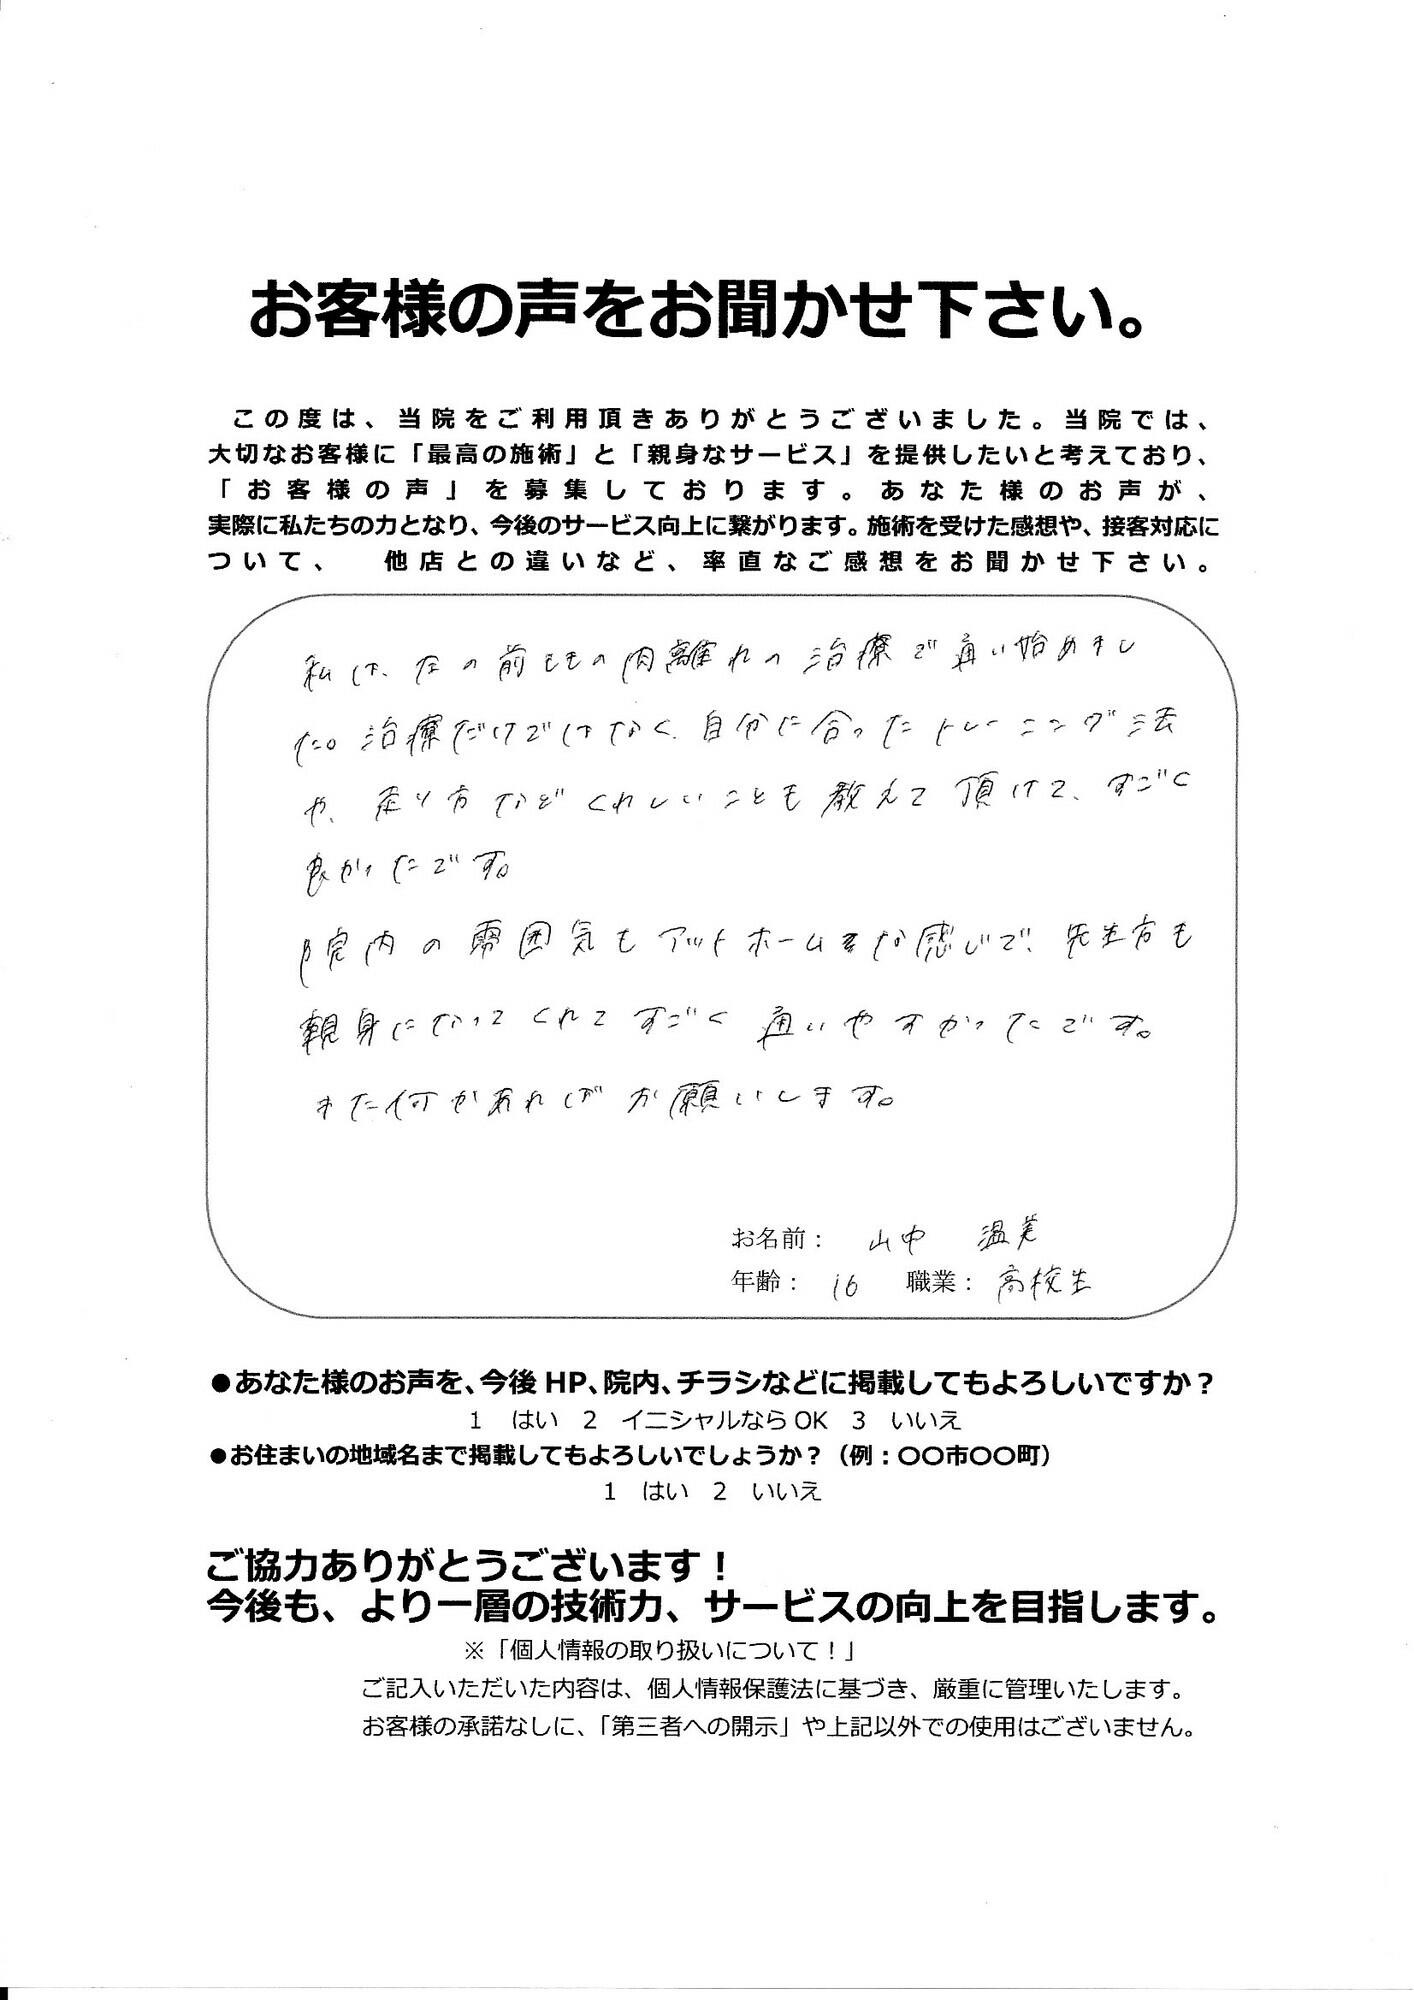 お客様の声をお聞かせ下さい。
この度は、当院をご利用頂きありがとうございました。当院では、
大切なお客様に「最高の施術」と「親身なサービス」を提供したいと考えており、
「お客様の声」を募集しております。あなた様のお声が、
実際に私たちの力となり、今後のサービス向上に繋がります。施術を受けた感想や、接客対応に
ついて、 他店との違いなど、率直なご感想をお聞かせ下さい。
私は、左の前ももの肉離れの治療で通い始めまし
た。治療だけではなく、自分に合ったトレーニング法
や、走り方などくわしいことも教えて頂けて、すごく
良かったです。
院内の雰囲気もアットホームな感じで、先生方も
親身になってくれてすごく通いやすかったです。
また何かあればお願いします。
お名前: 山中 温美
年齢: 16 職業: 高校生
●あなた様のお声を、今後 HP、院内、チラシなどに掲載してもよろしいですか？
1 はい 2 イニシャルなら OK 3 いいえ
●お住まいの地域名まで掲載してもよろしいでしょうか？（例：〇〇市〇〇町）
1 はい 2 いいえ
ご協力ありがとうございます！
今後も、より一層の技術力、サービスの向上を目指します。
※「個人情報の取り扱いについて！」
ご記入いただいた内容は、個人情報保護法に基づき、厳重に管理いたします。
お客様の承諾なしに、「第三者への開示」や上記以外での使用はございません。